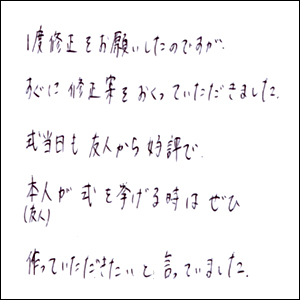 1度修正をお願いしたのですが、
すぐに修正案をおくっていただきました。
式当日も友人から好評で、
本人が式を挙げる時はぜひ
(友人)
作っていただきたいと言っていました。